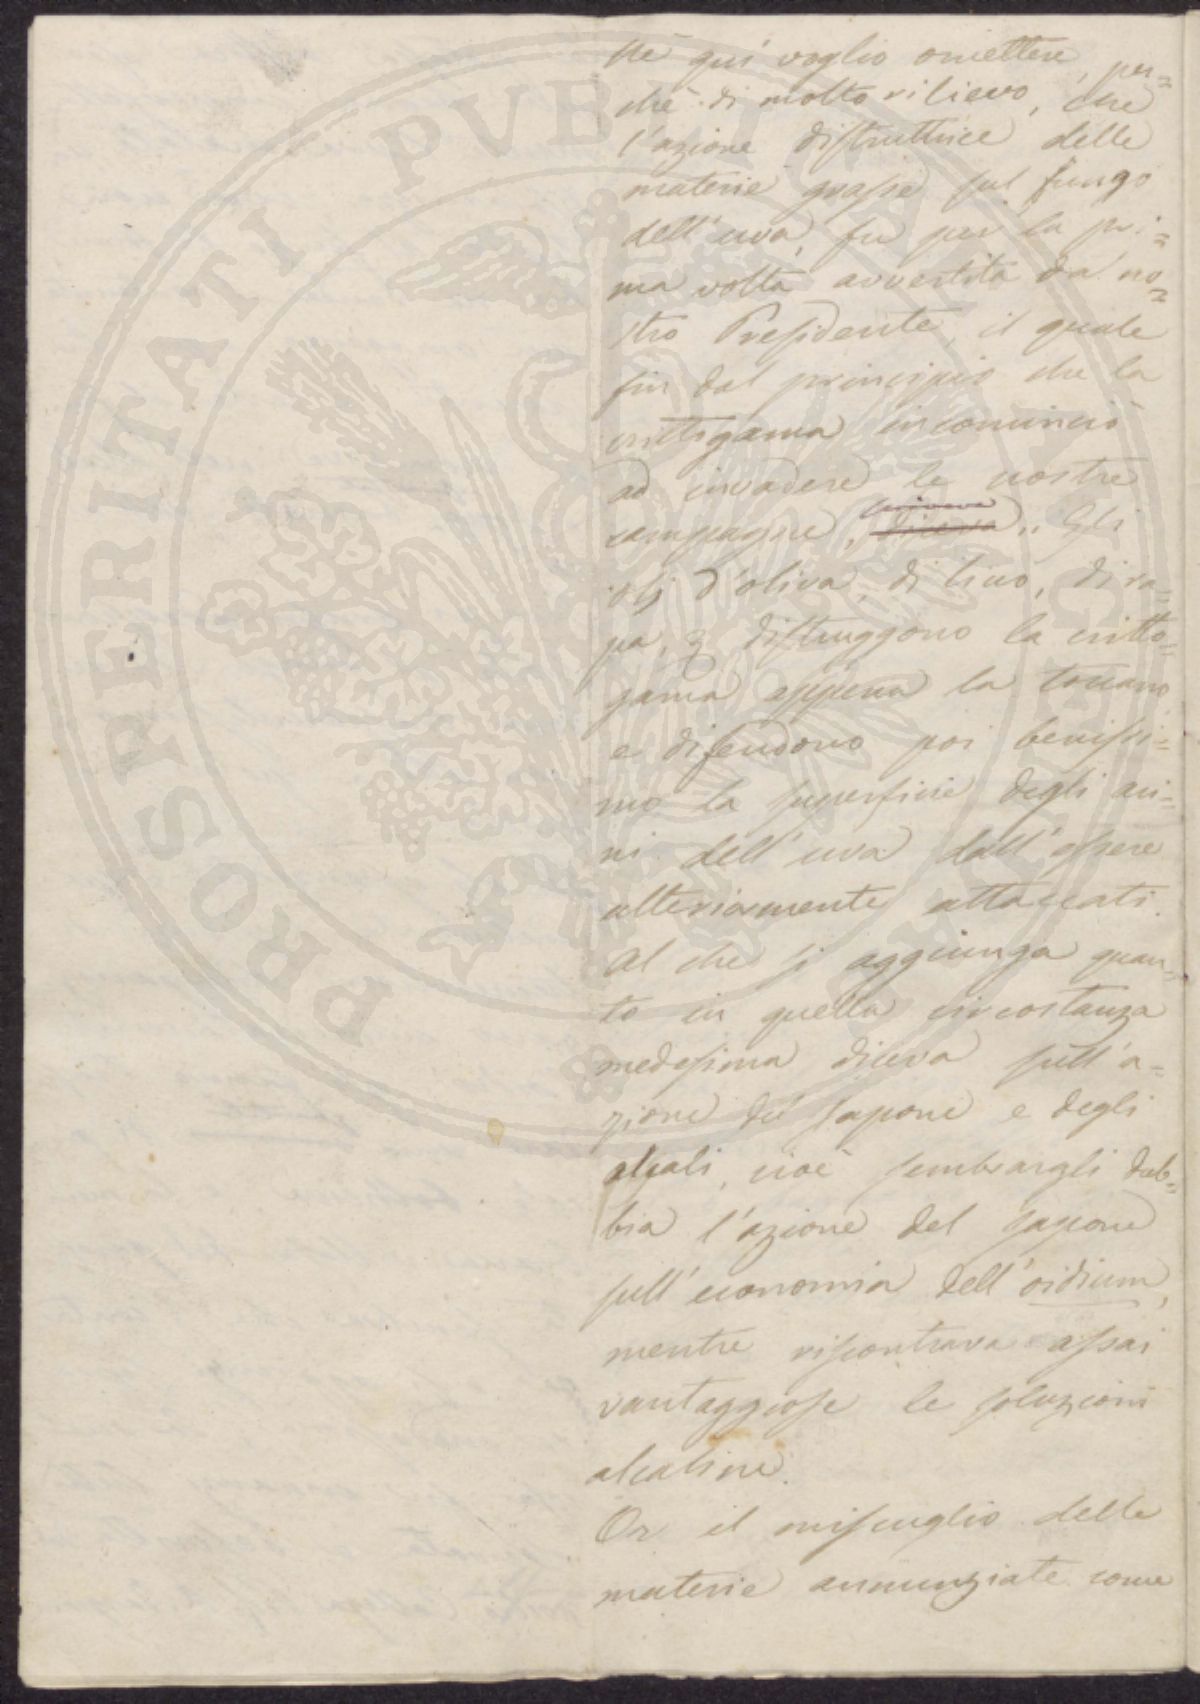 Nè qui voglio omettere, per=
chè di molto rilievo, che
l'azione distruttrice delle
materie grasse sul fungo
dell'uva, fu per la pri=
ma volta avvertita da no=
stro Presidente, il quale
fin dal principio che la
crittogama incominciò
ad invadere le nostre
scriveva
campagne, diceva „ Gli
olj d'oliva, di lino, di ra=
pa, & distruggono la critto=
gama appena la toccano
e difendono poi benissi=
mo la superficie degli aci=
ni dell'uva dall'essere
ulteriormente attaccati.
Al che si aggiunga quan=
to in quella circostanza
medesima diceva sull'a=
zione del sapone e degli
alcali, cioè sembrargli dub=
bia l'azione del sapone
sull'economia dell'oidium,
mentre riscontrava assai
vantaggiose le soluzioni
alcaline.
Or il miscuglio delle
materie annunziate come
PROSPERITATI PVBLICAE AVGENDAE